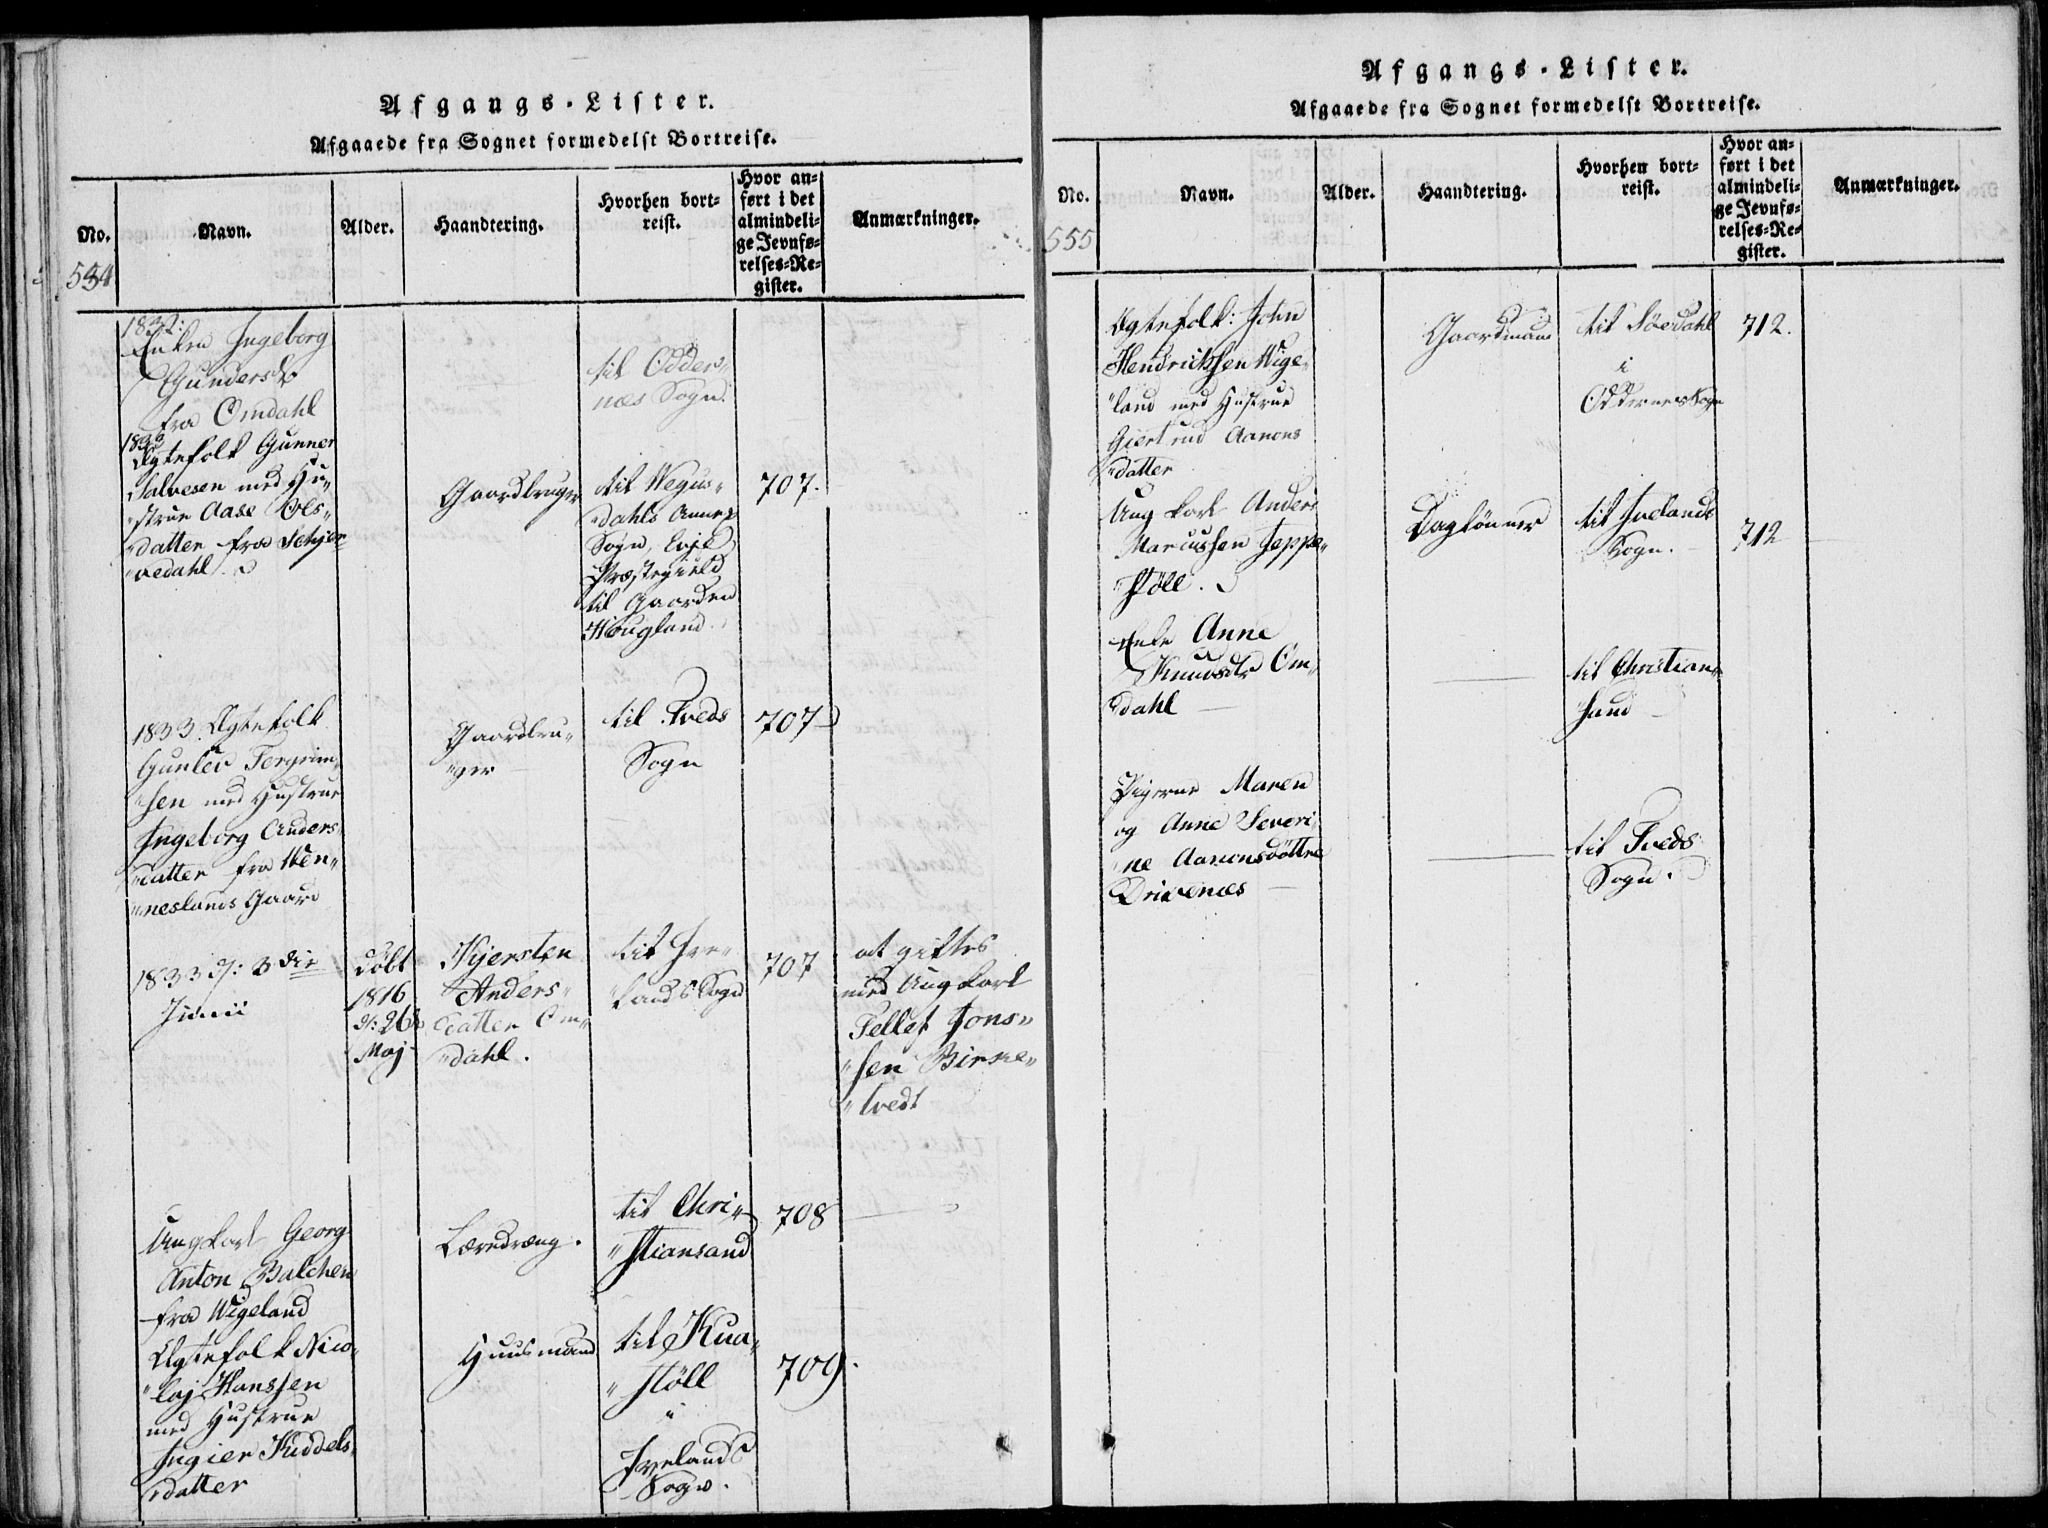 Afgangs-Lister.
Afgaaede fra Sognet formedelst Bortreise.
No.
Navn.
Alder.
Haandtering.
Hvorhen bort=
reist.
Hvor an=
ført i det
almindeli=
ge Jevnfø=
relses=Re=
gister.
Anmærkninger.
534
1832:
Enken Ingeborg
Gundersdr
fra Omdahl
til Odder„
næs Sogn.
1833
Ægtefolk Gunner
Salvesen med Hu„
„strue Aase Ols„
„datter fra Schjer„
„vedahl.
Gaardbruger
til Wegus„
„dahls Annex
Sogn, Evje
Præstegield
til Gaarden
Hougland.
707.
1833. Ægtefolk
Gunlev Tergrim„
„sen med Hustrue
Ingeborg Anders„
„datter fra Wen„
„neslands Gaard
Gaardbru„
„ger
til Tveds
Sogn
707
1833 d: 3die
Junii
døbt
1816
d: 26de
Maj
Kjersten
Anders„
datter Om„
„dahl.
til Ive„
„lands Sogn
707
at giftes
med Ungkarl
Tellef Jons„
„sen Birke„
„tvedt
Ungkarl Georg
Anton Balchen
fra Wigeland
Læredræng.
til Chri„
„stiansand
708
Ægtefolk Nico„
„laj Hanssen
med Hustrue
Ingier Kiddels„
„datter
Huusmand
til Kua„
„støll
i
Ivelands
Sogn.
709.
Afgangs-Lister.
Afgaaede fra Sognet formedelst Bortreise.
No.
Navn.
Alder.
Haandtering.
Hvorhen bort=
reist.
Hvor an=
ført i det
almindeli=
ge Jevnfø=
relses=Re=
gister.
Anmærkninger.
555
Ægtefolk: John
Hendrichsen Wige„
„land med Hustrue
Giertrud Aanons
„datter
Gaardmand
til Søedahl
i
Oddernes Sogn
712.
Ung karl Anders
Marcussen Jeppe„
„støll.
Daglønner
til Ivelands
Sogn.
712
Enke Anne
Knudsdr Om„
„dahl
til Christian„
„sand
Pigerne Maren
og Anne Severi„
„ne Aanonsdøttre
Drivenes
til Tveds
Sogn.